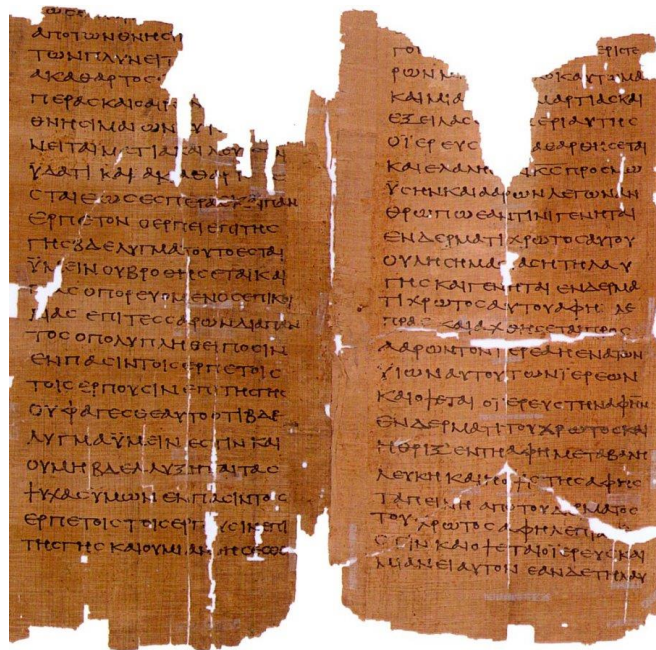 ΑΠΟΤΩΝΘΝΗϹΙ
ΤΩΝΠΛΥΝΕΙΤ
ΑΚΑΘΑΡΤΟϹ
ΠΕΡΑϹΚΑΙΟΑΙΡ
ΘΝΗϹΙΜΑΙΩΝ
ΝΕΙΤΑΙΜΑΤΙΑΚΑΙΛΟΥ
ΥΔΑΤΙ ΚΑΙ ΑΚΑΘΑΡΤ
ϹΤΑΙΕΩϹΕϹΠΕΡΑϹΚΑΙΠΑΝ
ΕΡΠΕΤΟΝ ΟΕΡΠΕΙΕΠΙΤΗϹ
ΓΗϹΒΔΕΛΥΓΜΑΤΟΥΤΟΕϹΤΑΙ
ΫΜΕΙΝΟΥΒΡΟΘΗϹΕΤΑΙΚΑΙ
ΑϹΟΠΟΡΕΥΟΜΕΝΟϹΕΠΙΚΟΙ
ΛΙΑϹ ΕΠΙΤΕϹϹΑΡΩΝΔΙΑΠΑΝ
ΤΟϹΟΠΟΛΥΠΛΗΘΕΙΠΟϹΙΝ
ΕΝΠΑϹΙΝΤΟΙϹΕΡΠΕΤΟΙϹ
ΤΟΙϹΕΡΠΟΥϹΙΝ ΕΠΙΤΗϹΓΗϹ
ΟΥΦΑΓΕϹΘΕΑΥΤΟΟΤΙΒΔΕ
ΛΥΓΜΑΫΜΕΙΝ ΕϹΤΙΝ ΚΑΙ
ΟΥΜΗΒΔΕΛΛΥΞΗΤΑΙΤΑϹ
ΨΥΧΑϹΥΜΩΝ ΕΝΠΑϹΙΝΤΟΙϹ
ΕΡΠΕΤΟΙϹΤΟΙϹΕΡΠΟΥϹΙΝΕΠΙ
ΤΗϹΓΗϹ ΚΑΙΟΥΜΙΑΝΘΗϹΕϹΘΕ
ΓΟΙ ΕΡΙϹΤΕ
ΡΩΝΝ ΚΑΥΤΩΜΑ
ΚΑΙΜΙΑ ΜΑΡΤΙΑϹΚΑΙ
ΕΞΕΙΛΑϹ ΕΡΙΑΥΤΗϹ
ΟΪΕΡΕΥϹ ΑΘΑΡΘΗϹΕΤΑΙ
ΚΑΙΕΛΑΛΗ ΚϹΠΡΟϹΜΩ
ΫϹΗΝΚΑΙΑΑΡΩΝΛΕΓΩΝΑΝ
ΘΡΩΠΩΕΑΝΤΙΝΙΓΕΝΗΤΑΙ
ΕΝΔΕΡΜΑΤΙΧΡΩΤΟϹΑΥΤΟΥ
ΟΥΛΗϹΗΜΑϹΑϹΗΤΗΛΑΥ
ΓΗϹΚΑΙΓΕΝΗΤΑΙΕΝΔΕΡΜΑ
ΤΙΧΡΩΤΟϹΑΥΤΟΥΑΦΗ ΛΕ
ΠΡΑϹ ΚΑΙΑΧΘΗϹΕΤΑΙΠΡΟϹ
ΑΑΡΩΝΤΟΝΪΕΡΕΑΗΕΝΑΤΩΝ
ΥΙΩΝΑΥΤΟΥΤΩΝΪΕΡΕΩΝ
ΚΑΙΟΨΕΤΑΙ ΟΪΕΡΕΥϹΤΗΝΑΦΗΝ
ΕΝΔΕΡΜΑΤΙΤΟΥΧΡΩΤΟϹΚΑΙ
ΗΘΡΙΞ ΕΝΤΗΑΦΗΜΕΤΑΒΑΛΗ
ΛΕΥΚΗΚΑΙΗΟΨΙϹΤΗϹΑΦΗϹ
ΤΑΠΕΙΝΗ ΑΠΟΤΟΥΔΕΡΜΑΤΟϹ
ΤΟΥ ΧΡΩΤΟϹΑΦΗΛΕΠΡΑ
ϹΤΙΝ ΚΑΙΟΨΕΤΑΙΟΪΕΡΕΥϹΚΑΙ
ΜΙΑΝΕΙΑΥΤΟΝ ΕΑΝΔΕΤΗΛΑΥ